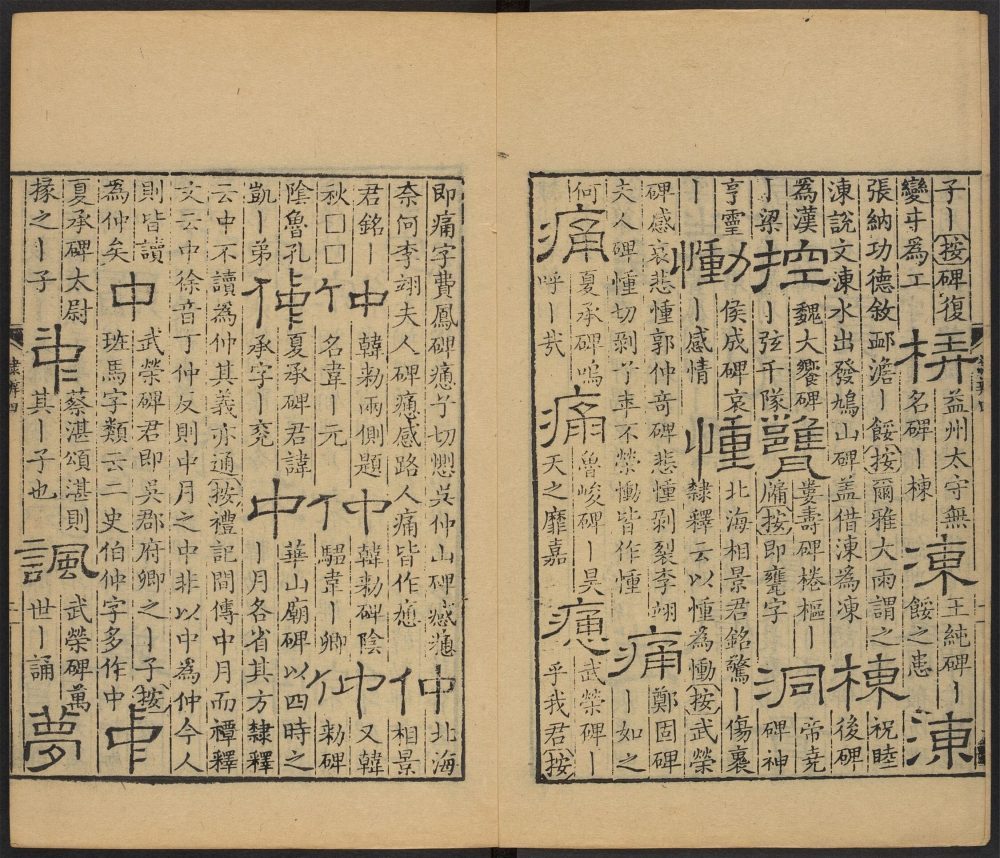 子丨按碑復
變寸為工
梇
益州太守無
名碑丨棟
凍
王純碑丨
餒之恚
涷
張納功德敘邳澹丨餒按爾雅大雨謂之
涷說文涷水出發鳩山碑盖借涷為凍
棟
祝睦
後碑
為漢
丨梁
控
魏大饗碑
丨弦千隊
甕
婁壽碑棬樞丨
牖按即甕字
洞
帝堯
碑神
亨霊
丨
慟
侯成碑哀
丨感情
㥖
北海相景君銘驚丨傷裏
隸釋云以㥖為慟按武榮
碑感哀悲㥖郭仲奇碑悲㥖剥裂李翊
夫人碑㥖切剝兮年不榮慟皆作㥖
痛
鄭固碑
丨如之
何
痛
夏承碑嗚
呼丨哉
痛
魯峻碑丨昊
天之靡嘉
㾓
武榮碑丨
乎我君按
即痛字費鳳碑㾓兮切懰吳仲山碑感㾓
奈何李翊夫人碑㾓感路人痛皆作㾓
仲
北海
相景
君銘丨
秋□□
仲
韓勑兩側題
名韋丨元
仲
韓勑碑陰
騶韋丨卿
仲
又韓
勑碑
陰魯孔
凱丨弟
仲
夏承碑君諱
承字丨兗
中
華山廟碑以四時之
丨月各省其方隸釋
云中不讀為仲其義亦通按禮記間傳中月而禫釋
文云中徐音丁仲反則中月之中非以中為仲今人
則皆讀
為仲矣
中
武榮碑君即吳郡府卿之丨子按
班馬字類云二史伯仲字多作中
中
夏承碑太尉
掾之丨子
中
蔡湛頌湛則
其丨子也
諷
武榮碑萬
世丨誦
夢
隸辨四